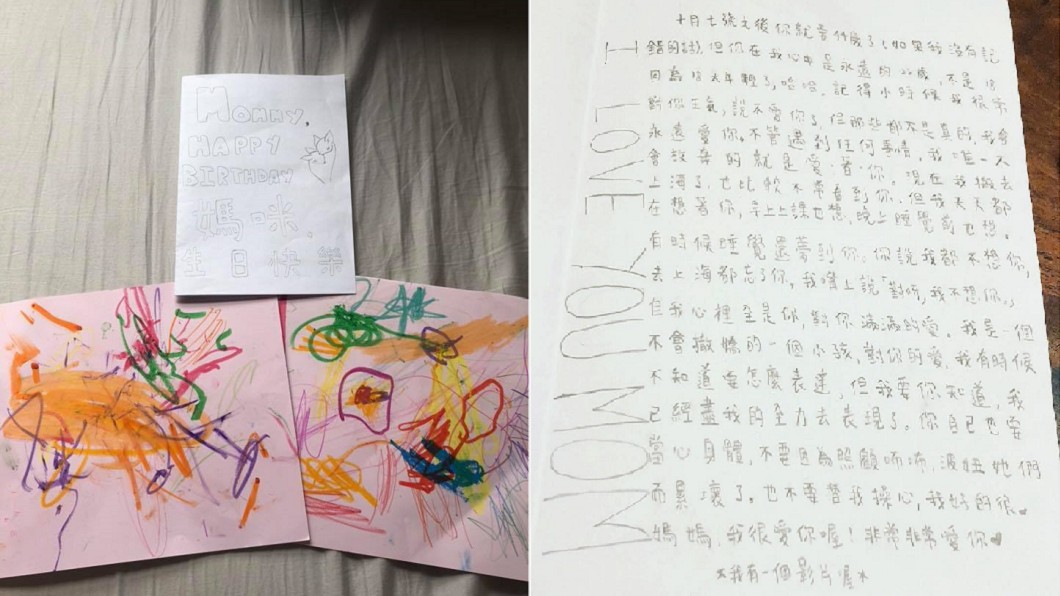 MOMMY,
HAPPY
BIRTHDAY
媽咪,
生日快樂
I LOVE YOU MOM
十月七號之後你就 了(如果我沒有記
錯的話,但你在我心中是永遠的 歲,不是18
因為18太年輕了,哈哈。記得小時候我很常
對你生氣,說不愛你了,但那些都不是真的,我會
永遠愛你,不管遇到任何事情,我唯一不
會放棄的就是愛著你。現在我搬去
上海了,也比較不常看到你,但我天天都
在想著你,早上上課也想,晚上睡覺前也想。
有時候睡覺還夢到你,你說我都不想你,
去上海都忘了你,我嘴上說「對啊,我不想你」,
但我心裡全是你,對你滿滿的愛。我是一個
不會撒嬌的一個小孩,對你的愛,我有時候
不知道要怎麼表達,但我要你知道,我
已經盡我的全力去表現了。你自己也要
當心身體,不要因為照顧咘咘,波妞她們
而累壞了。也不要替我操心,我好的很。
媽媽,我很愛你喔!非常非常愛你♥
*我有一個影片喔*